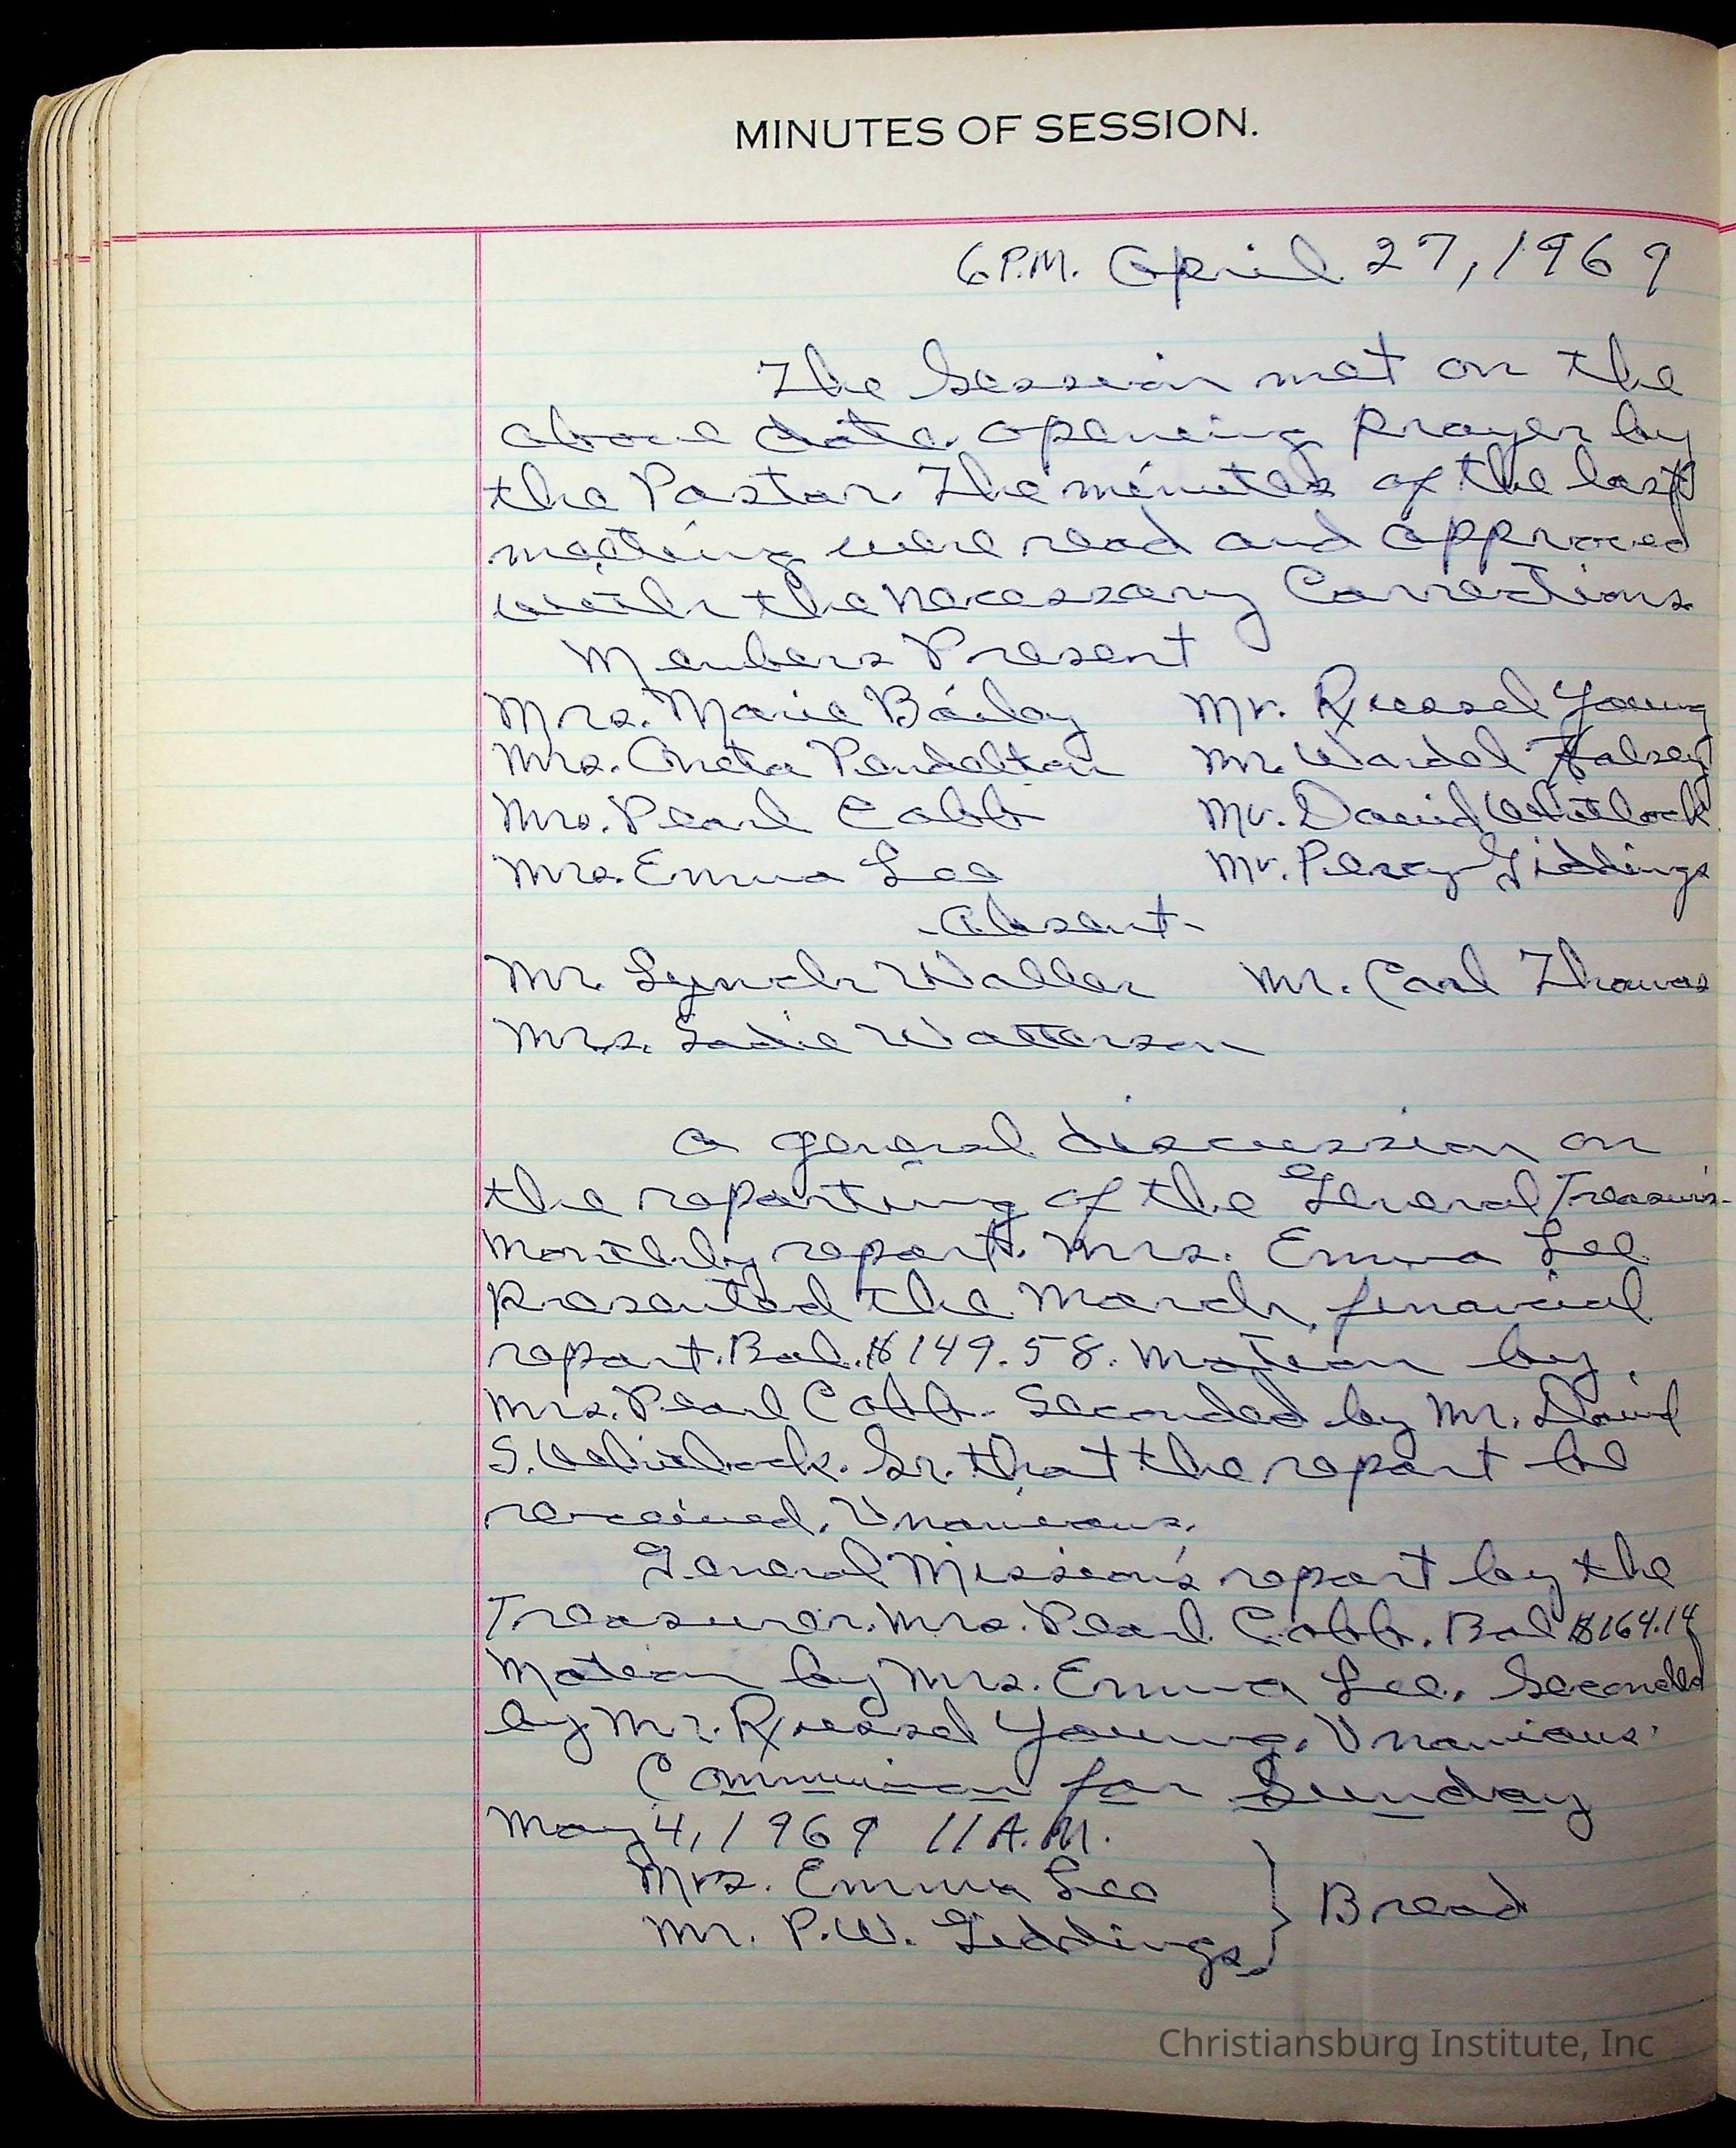 MINUTES OF SESSION.
6 P.M. April 27, 1969
The Session met on the
above date. opening prayer by
the Pastor. The minutes of the last
meeting were read and approved
with the necessary Corrections.
Members Present
Mrs. Marie Bailey Mr. Russel Young
Mrs. Oneta Pendelton Mr. Wardel Halsey
Mrs. Pearl Cobb Mr. David Whitlock
Mrs. Emma Lee Mr. Percy Giddings
-Absent-
Mr. Lynch Waller Mr. Carl Thomas
Mrs. Sadie Watterson
A general discussion on
the reporting of the General
Monthly report. Mrs. Emma Lee
presented the March, financial
report. Bal. $149.58. Motion by
Mrs. Pearl Cobb. Seconded by Mr. David
S. Whitlock. Sr. that the report be
received. Unanious.
General Mission's report by the
Treasurer. Mrs. Pearl Cobb. Bal $164.14
Motion by Mrs. Emma Lee. Seconded
by Mr. Russel Young. Unanious.
Communion for Sunday
May 4, 1969 11 A.M.
Mrs. Emma Lee
Mr. P.W. Giddings } Bread
Christiansburg Institute, Inc